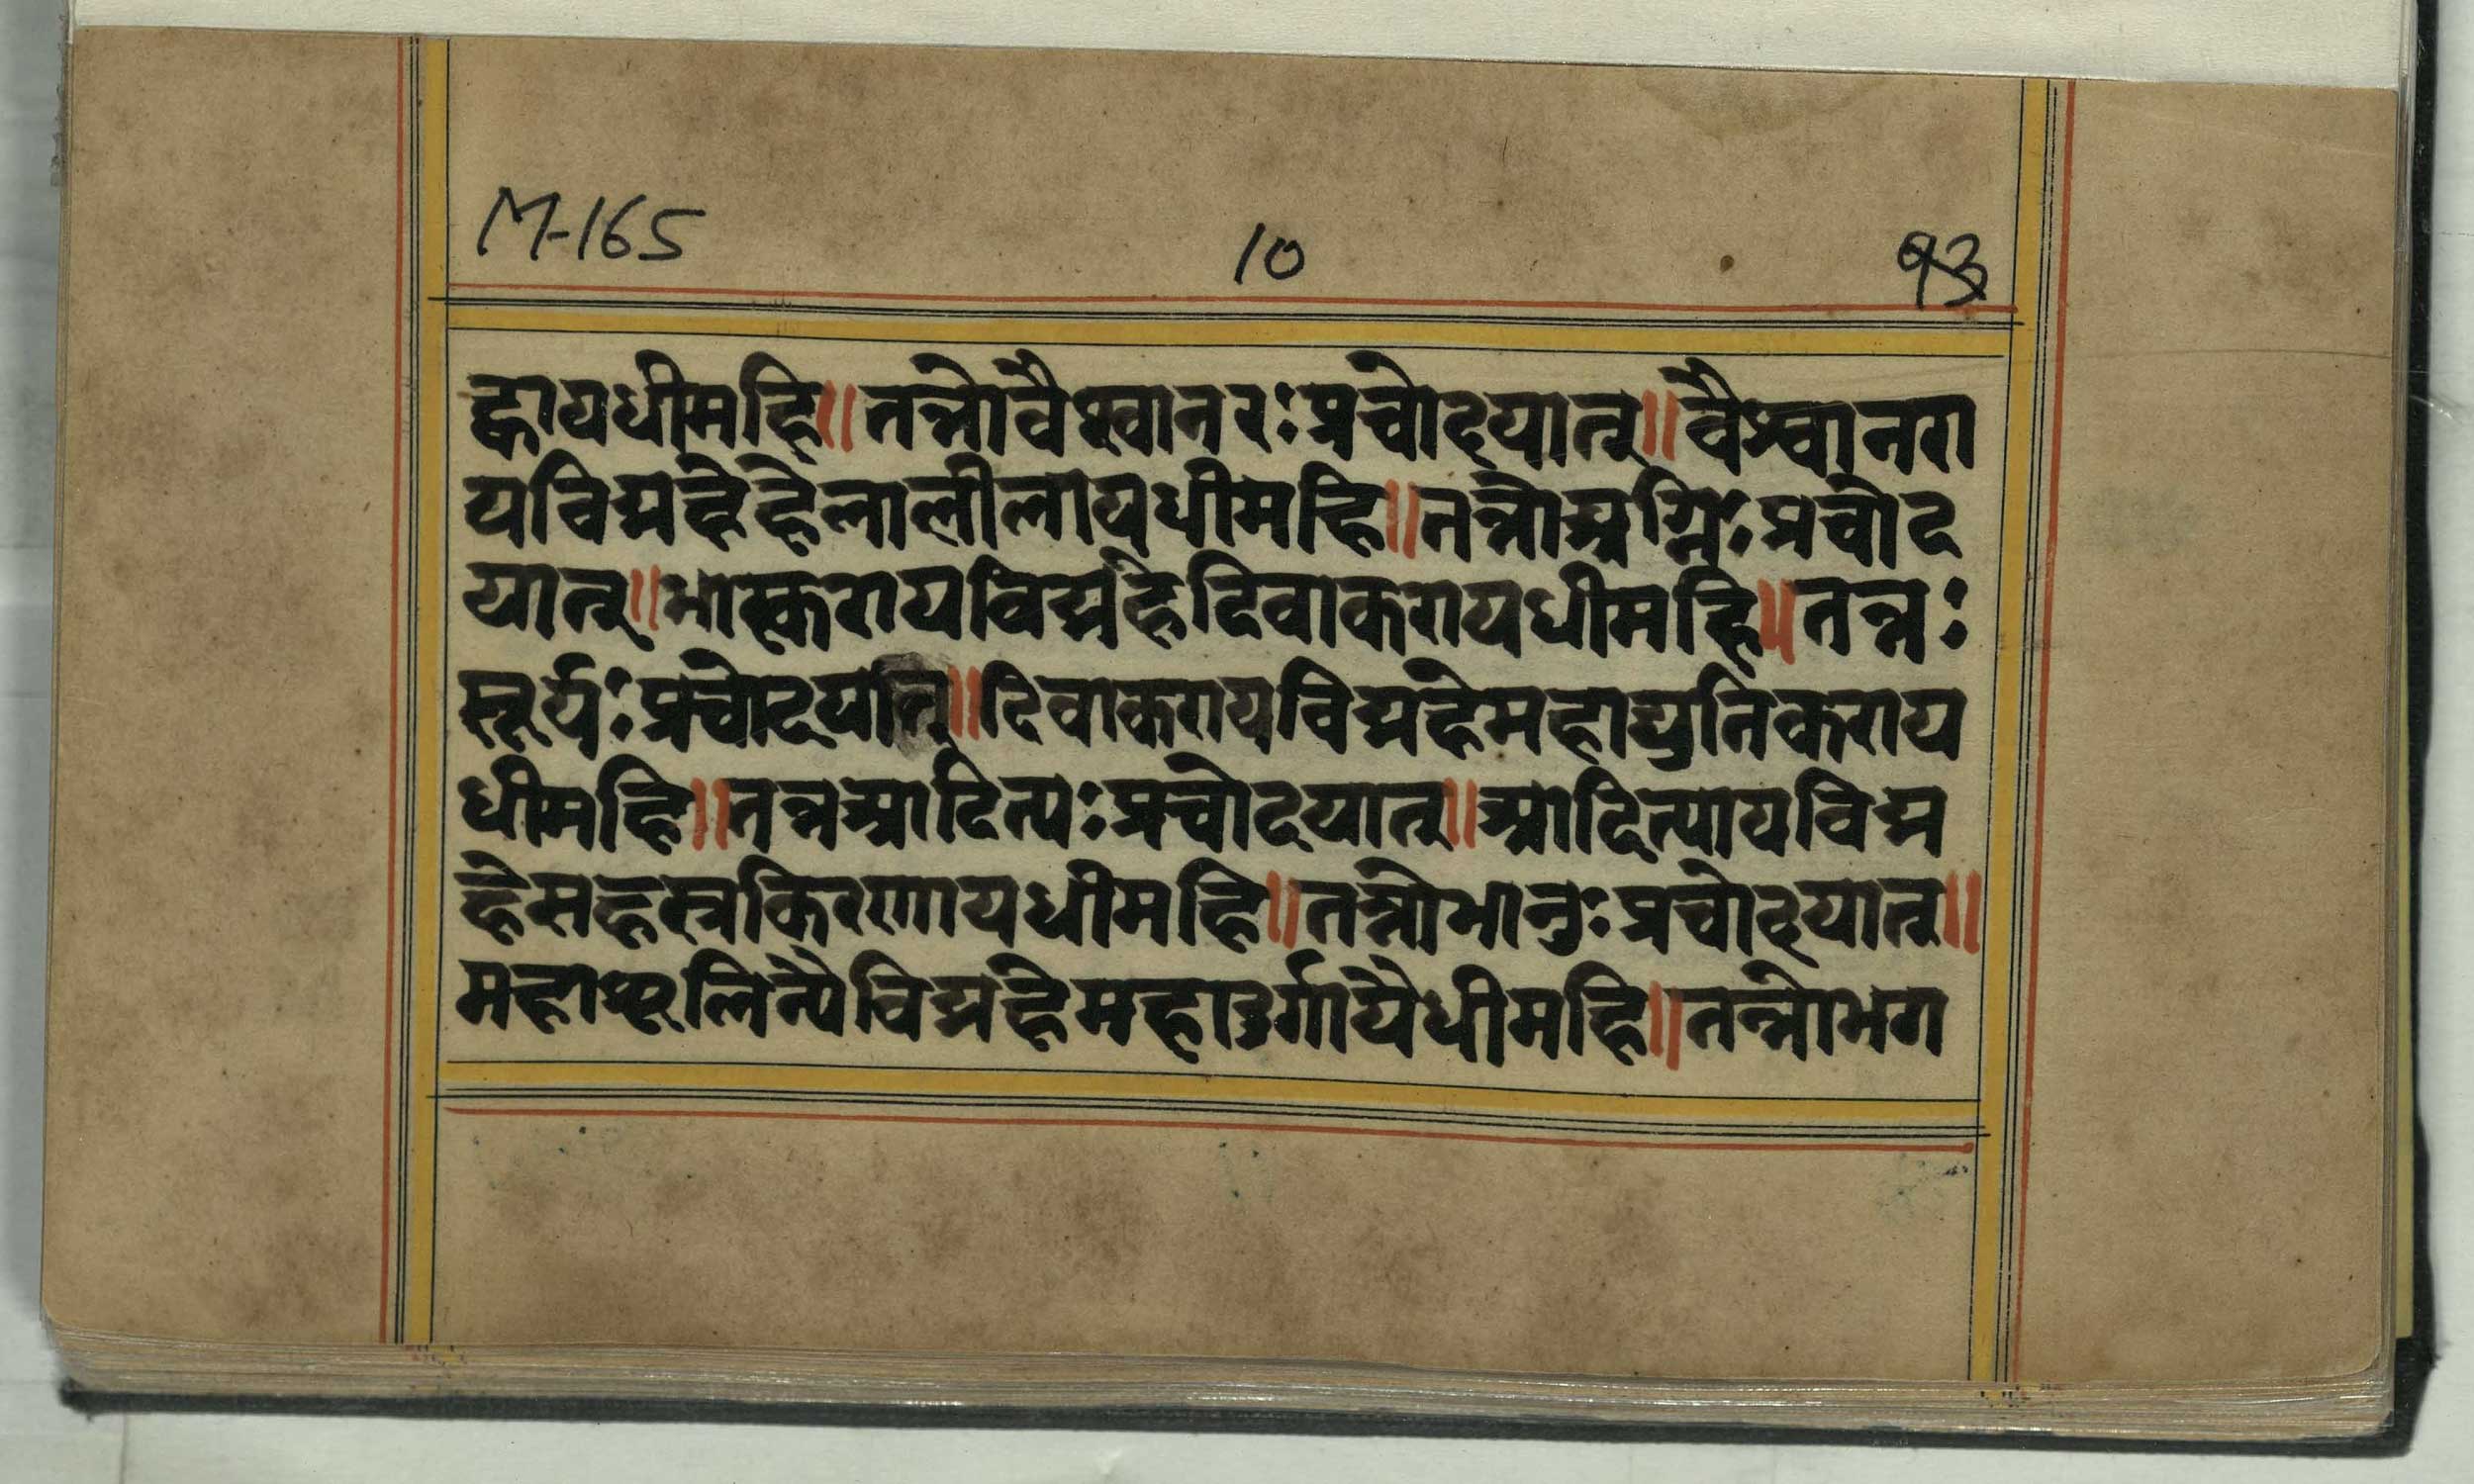 M-165 10 १३
ह्वायधीमहि॥तन्नोवैश्वानरःप्रचोदयात्॥वैश्वानरा
यविद्महेहेलालीलायधीमहि॥तन्नोअग्निःप्रचोद
यात्॥भास्करायविद्महेदिवाकरायधीमहि॥तन्नः
सूर्यःप्रचोदयात्॥दिवाकरायविद्महेमहाद्युतिकराय
धीमहि॥तन्नआदित्यःप्रचोदयात्॥आदित्यायविद्म
हेसहस्रकिरणायधीमहि॥तन्नोभानुःप्रचोदयात्॥
महाशूलिन्यैविद्महेमहादुर्गायैधीमहि॥तन्नोभग